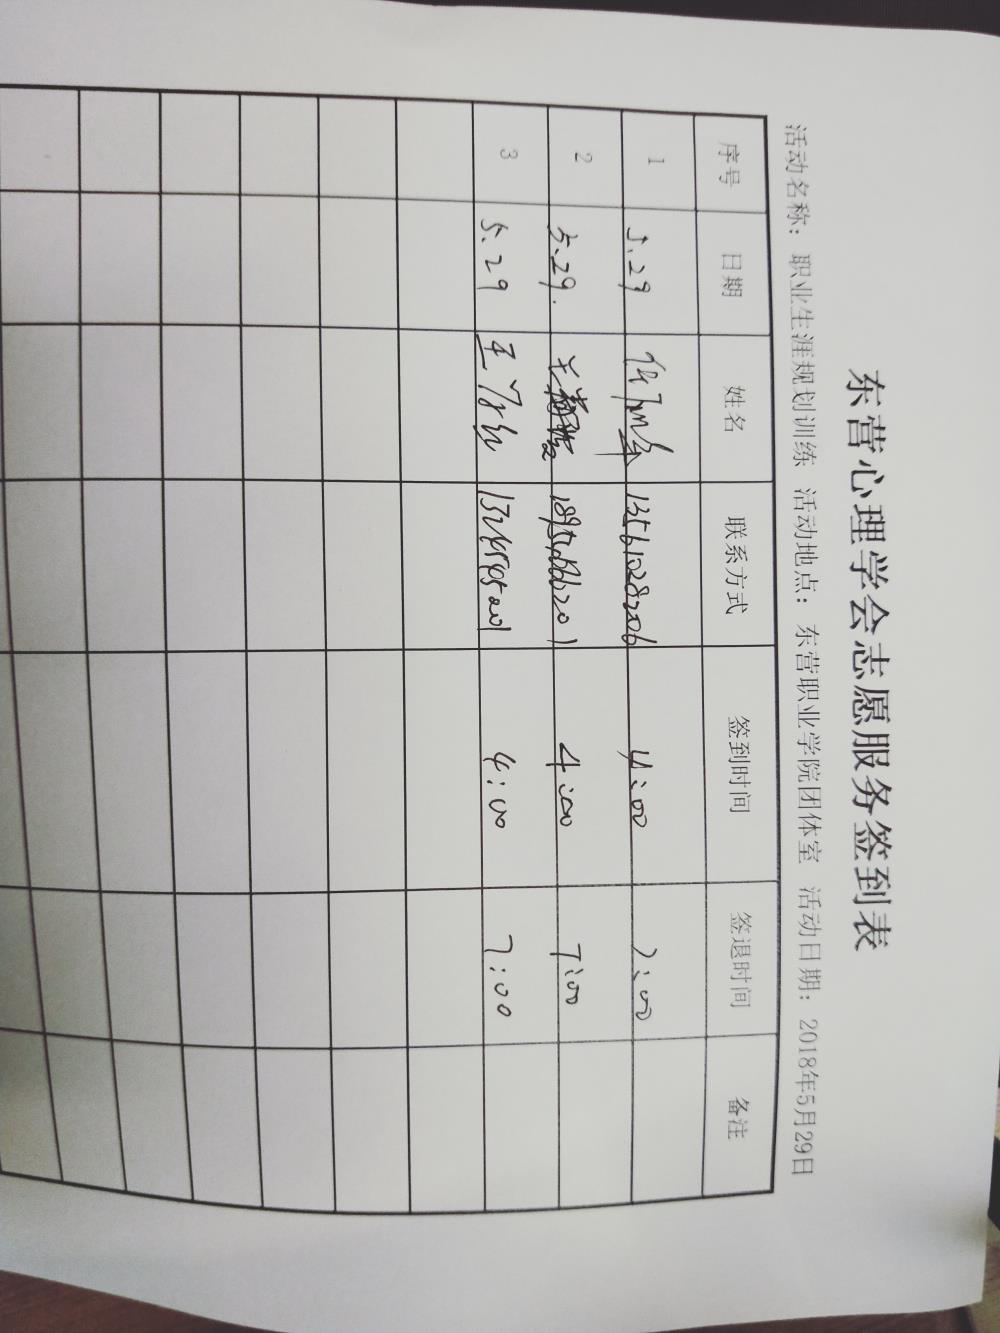 东营心理学会志愿服务签到表
活动名称：职业生涯规划训练 活动地点：东营职业学院团体室 活动日期：2018年5月29日
序号 日期 姓名 联系方式 签到时间 签退时间 备注
1 5.29 13561028206 4:00 7:00
2 5.29. 4:00 7:00
3 5.29 4:00 7:00